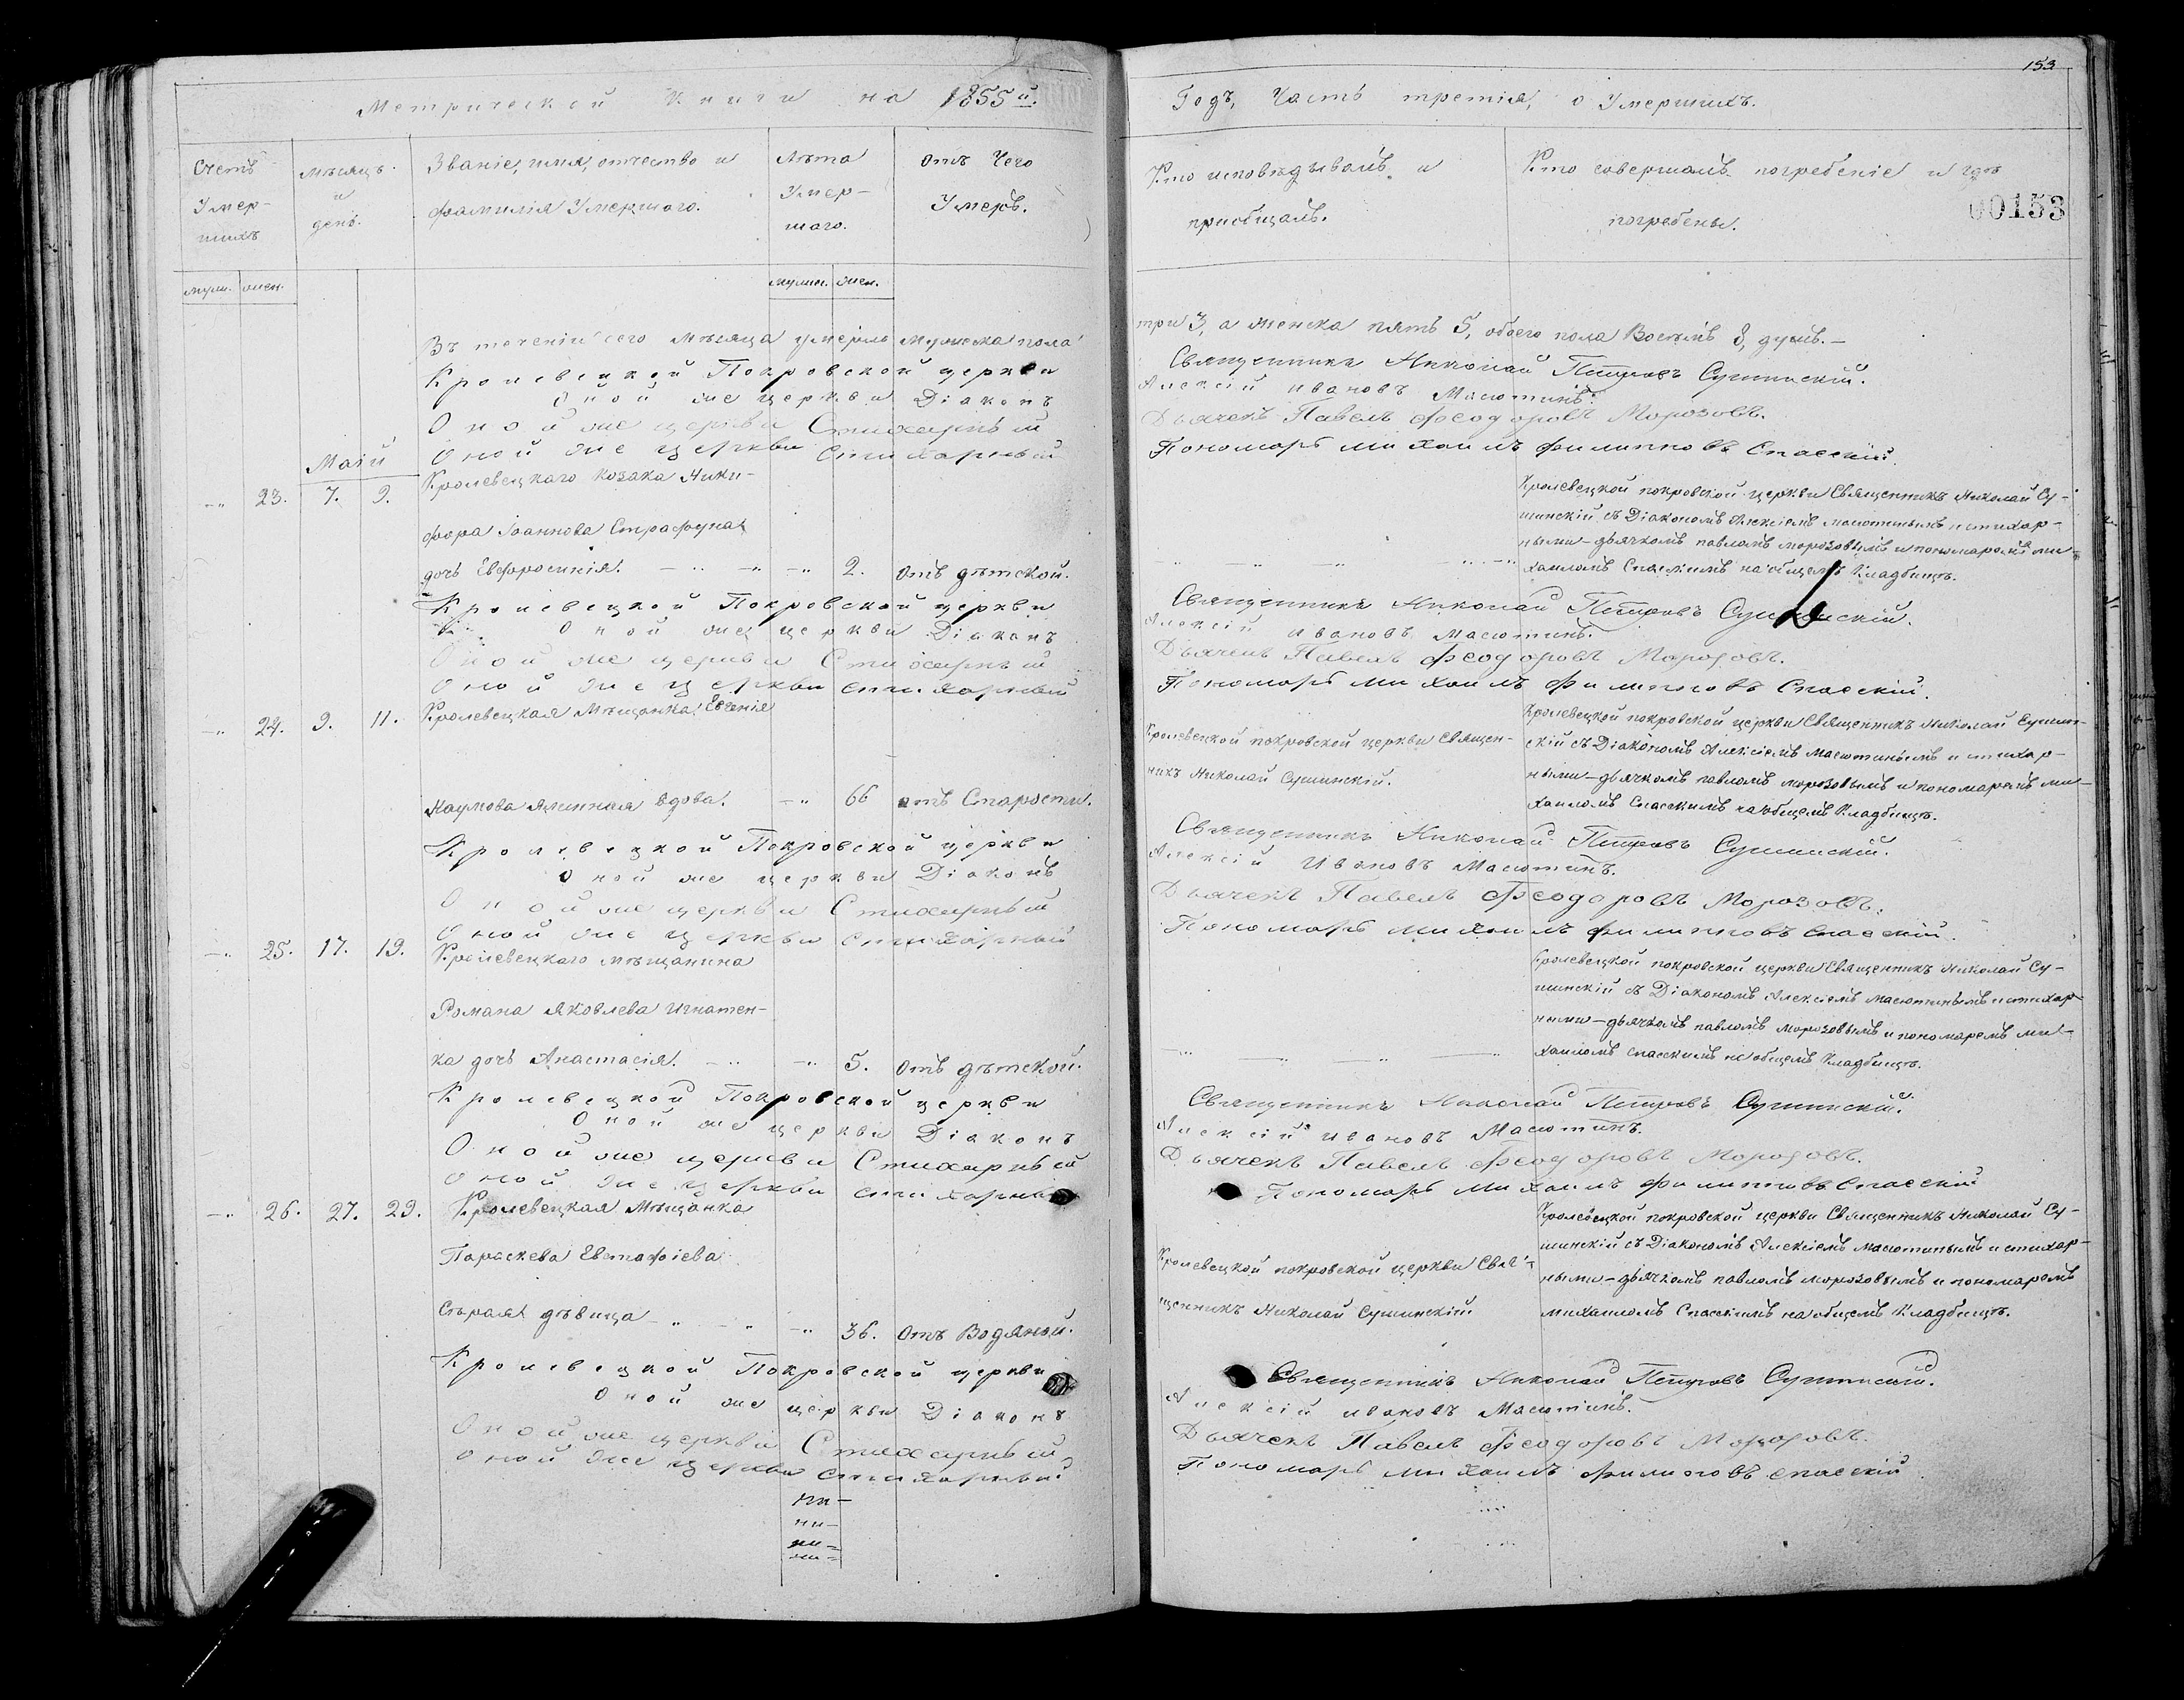 153
Метрической Книги на 1855й.
Годъ, Часть третія, о Умершихъ.
Счетъ Умер-
шихъ
Мѣсяцъ
и
день.
Званіе, имя, отчество и
фамилія Умершаго.
Лѣта
Умер-
шаго.
Отъ Чего
Умеръ.
Кто исповѣдывалъ и
приобщалъ.
Кто совершалъ погребеніе и гдѣ
погребены.
00153
муж. жен.
мужес. жен.
Въ теченіи сего мѣсяца умерло мужеска пола
три 3, а женска пять 5, обоего пола Восемь 8, душъ.—
Кролевецкой Покровской церкви
Священникъ Николай Петровъ Сушинскій.
Оной же церкви Діаконъ
Алексій Ивановъ Масютинъ.
Оной же церкви Стихарный
Дьячекъ Павелъ Феодоровъ Морозовъ.
Оной же церкви стихарный
Пономарь Михаилъ Филипповъ Спасскій.
Маій
23. 7. 9.
Кролевецкаго козака Ники-
фора Іоаннова Страфуна
дочь Евфросинія. 2. Отъ дѣтской.
Кролевецкой покровской церкви Священникъ Николай Су-
шинскій съ Діакономъ Алексіемъ Масютинымъ и стихар-
ными-дьячкомъ павломъ морозовымъ и пономаремъ ми-
хаиломъ Спасскимъ на общемъ Кладбищѣ.
Кролевецкой Покровской церкви
Священникъ Николай Петровъ Сушинскій.
Оной же церкви Діаконъ
Алексій Ивановъ Масютинъ.
Оной же церкви Стихарный
Дьячекъ Павелъ Феодоровъ Морозовъ.
Оной же церкви стихарный
Пономарь Михаилъ Филипповъ Спасскій.
24. 9. 11.
Кролевецкая Мѣщанка Евгенія
Наумова вдова. 66 отъ Старости.
Кролевецкой покровской церкви Священ-
никъ Николай Сушинскій.
Кролевецкой покровской церкви Священникъ Николай Сушин-
скій съ Діакономъ Алексіемъ Масютинымъ и стихар-
ными-дьячкомъ павломъ морозовымъ и пономаремъ ми-
хаиломъ Спасскимъ на общемъ Кладбищѣ.
Кролевецкой Покровской церкви
Священникъ Николай Петровъ Сушинскій.
Оной же церкви Діаконъ
Алексій Ивановъ Масютинъ.
Оной же церкви Стихарный
Дьячекъ Павелъ Феодоровъ Морозовъ.
Оной же церкви стихарный
Пономарь Михаилъ Филипповъ Спасскій.
25. 17. 19.
Кролевецкаго мѣщанина
Романа Яковлева Игнатен-
ка дочь Анастасія. 5. Отъ дѣтской.
Кролевецкой покровской церкви Священникъ Николай Су-
шинскій съ Діакономъ Алексіемъ Масютинымъ и стихар-
ными-дьячкомъ павломъ морозовымъ и пономаремъ ми-
хаиломъ спасскимъ на общемъ Кладбищѣ.
Кролевецкой Покровской церкви
Священникъ Николай Петровъ Сушинскій.
Оной же церкви Діаконъ
Алексій Ивановъ Масютинъ.
Оной же церкви Стихарный
Дьячекъ Павелъ Феодоровъ Морозовъ.
Оной же церкви стихарный
Пономарь Михаилъ Филипповъ Спасскій
26. 27. 29.
Кролевецкая Мѣщанка
Параскева Евстафіева
Сѣрая дѣвица 36. Отъ Водяной.
Кролевецкой покровской церкви Свя-
щенникъ Николай Сушинскій.
Кролевецкой покровской церкви Священникъ Николай Су-
шинскій съ Діакономъ Алексіемъ Масютинымъ и стихар-
ными-дьячкомъ павломъ морозовымъ и пономаремъ
михаиломъ Спасскимъ на общемъ Кладбищѣ.
Кролевецкой Покровской церкви
Священникъ Николай Петровъ Сушинскій.
Оной же церкви Діаконъ
Алексій Ивановъ Масютинъ.
Оной же церкви Стихарный
Дьячекъ Павелъ Феодоровъ Морозовъ.
Оной же церкви стихарный
Пономарь Михаилъ Филиповъ Спасскій